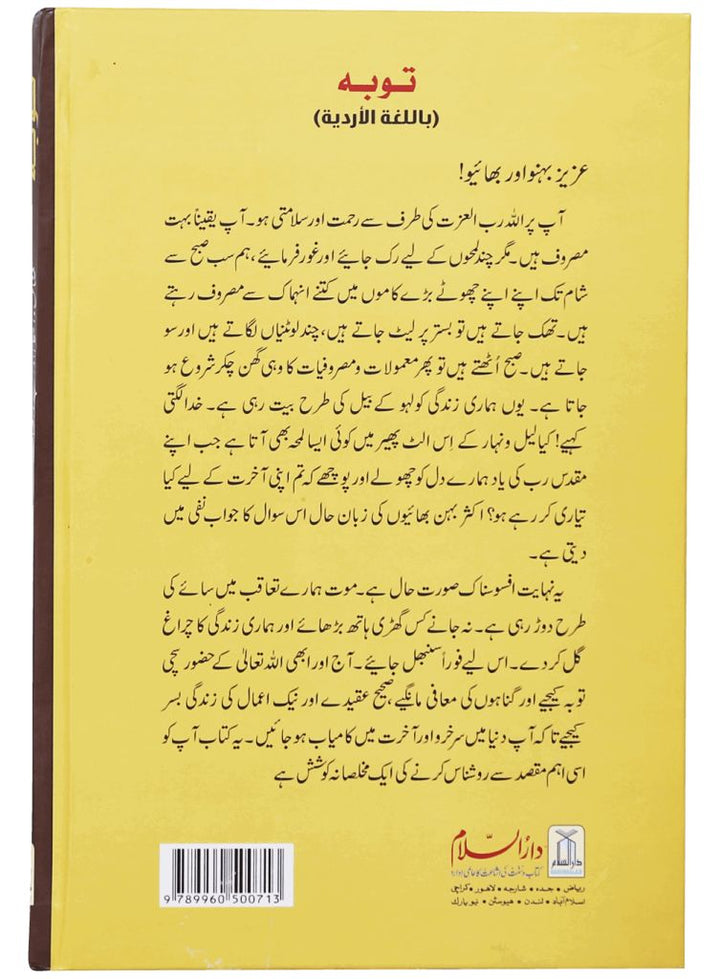 توبہ
(باللغة الأردية)
عزیز بہنو اور بھائیو!
آپ پر اللہ رب العزت کی طرف سے رحمت اور سلامتی ہو۔ آپ یقیناً بہت
مصروف ہیں۔ مگر چند لمحوں کے لیے رک جائیے اور غور فرمائیے، ہم سب صبح سے
شام تک اپنے اپنے چھوٹے بڑے کاموں میں کتنے انہماک سے مصروف رہتے
ہیں۔ تھک جاتے ہیں تو بستر پر لیٹ جاتے ہیں، چند لوٹنیاں لگاتے ہیں اور سو
جاتے ہیں۔ صبح اُٹھتے ہیں تو پھر معمولات و مصروفیات کا وہی گھن چکر شروع ہو
جاتا ہے۔ یوں ہماری زندگی کولہو کے بیل کی طرح بیت رہی ہے۔ خدا لگتی
کہیے! کیا لیل و نہار کے اِس الٹ پھیر میں کوئی ایسا لمحہ بھی آتا ہے جب اپنے
مقدس رب کی یاد ہمارے دل کو چھولے اور پوچھے کہ تم اپنی آخرت کے لیے کیا
تیاری کر رہے ہو؟ اکثر بہن بھائیوں کی زبان حال اس سوال کا جواب نفی میں
دیتی ہے۔
یہ نہایت افسوسناک صورت حال ہے۔ موت ہمارے تعاقب میں سائے کی
طرح دوڑ رہی ہے۔ نہ جانے کس گھڑی ہاتھ بڑھائے اور ہماری زندگی کا چراغ
گل کر دے۔ اس لیے فوراً سنبھل جائیے۔ آج اور ابھی اللہ تعالیٰ کے حضور سچی
توبہ کیجیے اور گناہوں کی معافی مانگیے، صحیح عقیدے اور نیک اعمال کی زندگی بسر
کیجیے تاکہ آپ دنیا میں سرخرو اور آخرت میں کامیاب ہو جائیں۔ یہ کتاب آپ کو
اسی اہم مقصد سے روشناس کرنے کی ایک مخلصانہ کوشش ہے
دارالسلام
کتاب و سنت کی اشاعت کا عالمی ادارہ
ریاض • جدہ • شارجہ • لاہور • کراچی
اسلام آباد • لندن • ہیوسٹن • نیو یارک
دارالسلام
DARUSSALAM
9 789960 500713